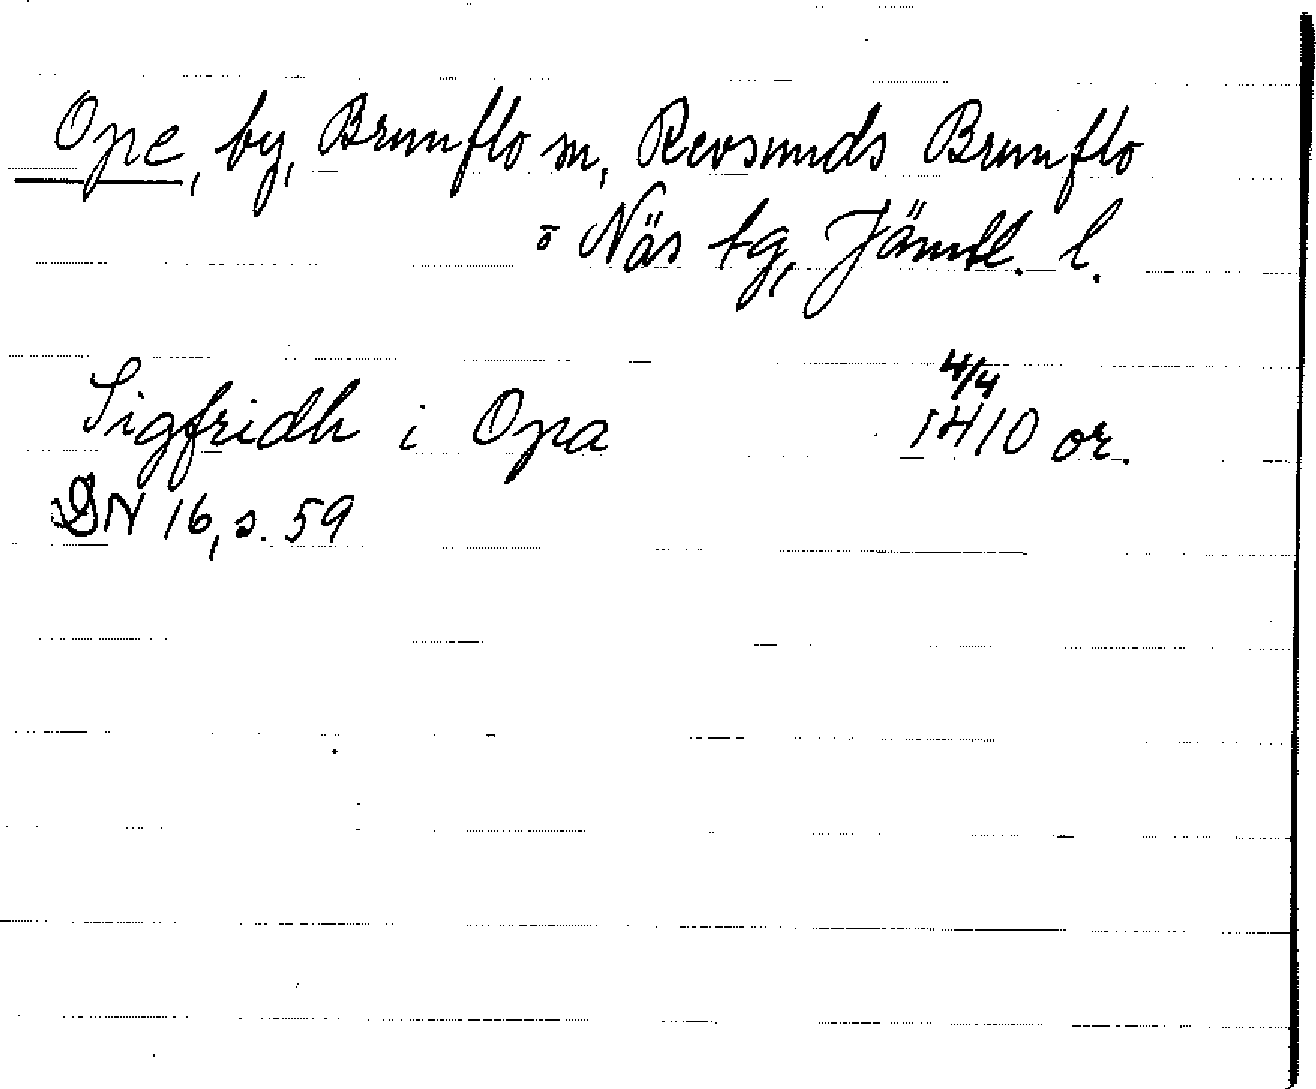 Ope, by, Brunflo sn, Revsunds Brunflo
o Näs tg, Jämtl. l.
4/4
Sigfridh i Opa 1410 or.
DN 16, s. 59